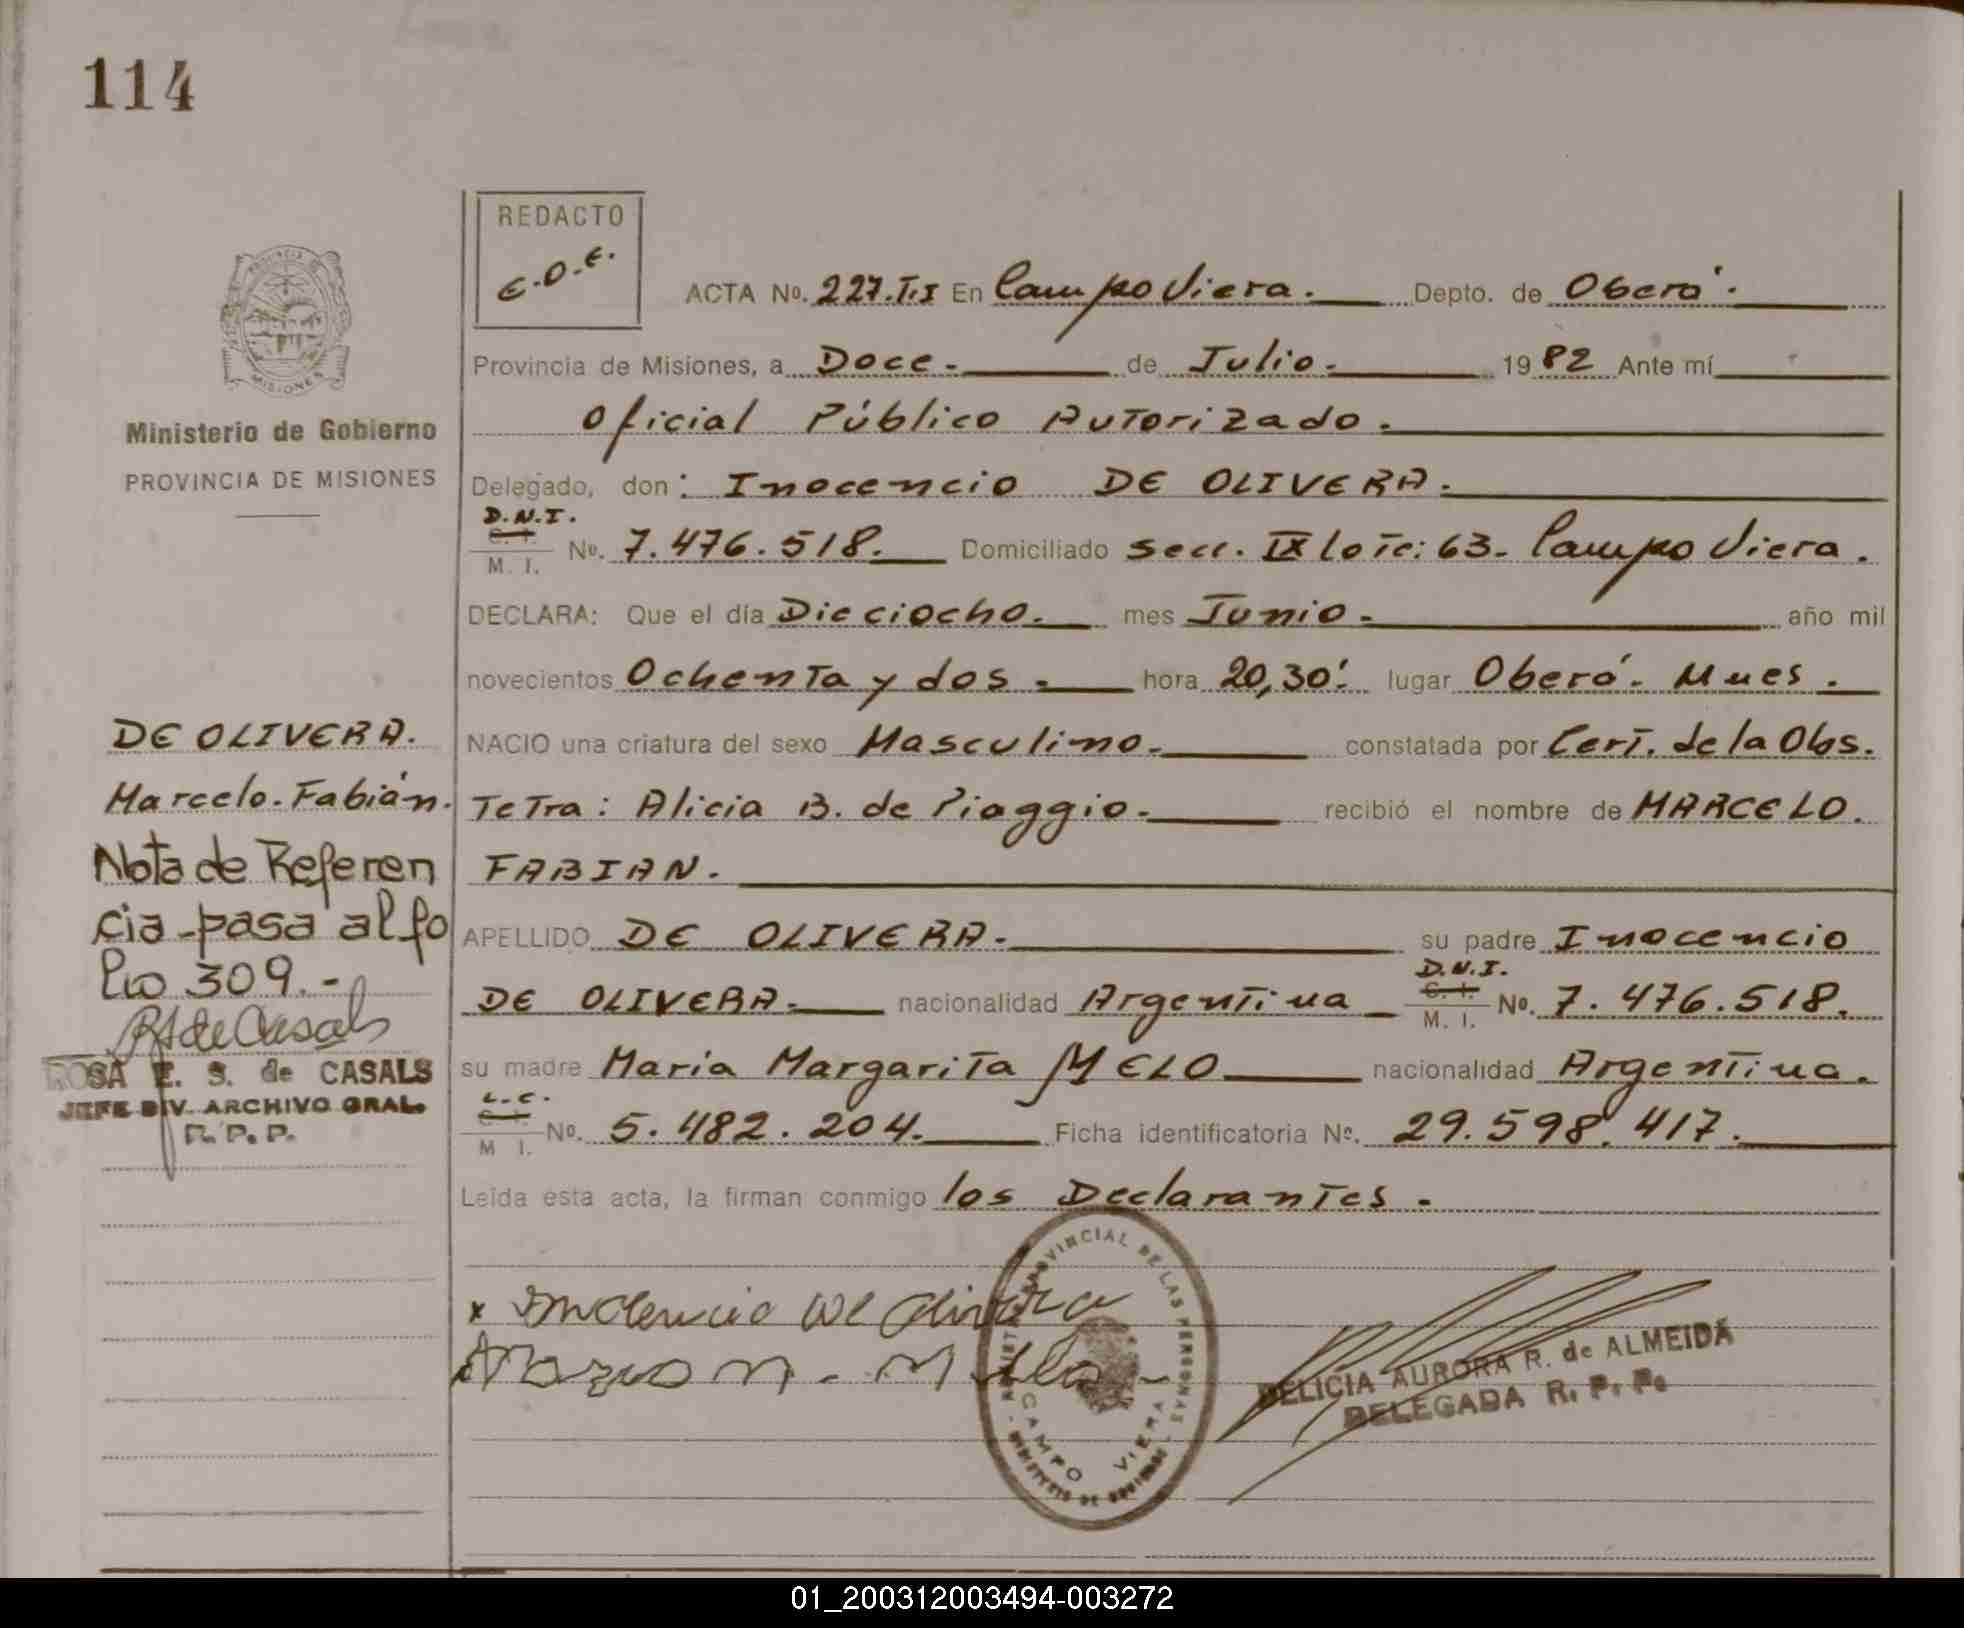 114
REDACTO
E.O.E.
PROVINCIA DE
MISIONES
Ministerio de Gobierno
PROVINCIA DE MISIONES
ACTA No. 227.T.I En Campo Viera. Depto. de Oberá.
Provincia de Misiones, a Doce. de Julio. 1982 Ante mí
Oficial Público Autorizado.
Delegado, don: Inocencio DE OLIVERA.
D.N.I.
C. I.
M. I. No. 7.476.518. Domiciliado Secc. IX Lote: 63. Campo Viera.
DECLARA: Que el día Dieciocho. mes Junio. año mil
novecientos Ochenta y dos. hora 20,30'. lugar Oberá. Mnes.
NACIO una criatura del sexo Masculino. constatada por Cert. de la Obs.
Tetra: Alicia B. de Piaggio. recibió el nombre de MARCELO.
FABIAN.
APELLIDO DE OLIVERA. su padre Inocencio
DE OLIVERA. nacionalidad Argentina D.N.I. C. I. M. I. No. 7.476.518.
su madre María Margarita MELO nacionalidad Argentina.
L.C.
C. I.
M I. No. 5.482.204. Ficha identificatoria No. 29.598.417.
Leída esta acta, la firman conmigo los Declarantes.
DE OLIVERA.
Marcelo. Fabián.
Nota de Referen
cia - pasa al fo
lio 309.-
RS de Casals
ROSA E. S. de CASALS
JEFE DIV. ARCHIVO GRAL.
R. P. P.
x Inocencio de Olivera
PROVINCIAL DE LAS PERSONAS
CAMPO VIERA
MINISTERIO DE GOBIERNO
DELICIA AURORA R. de ALMEIDA
DELEGADA R. P. P.
01_200312003494-003272